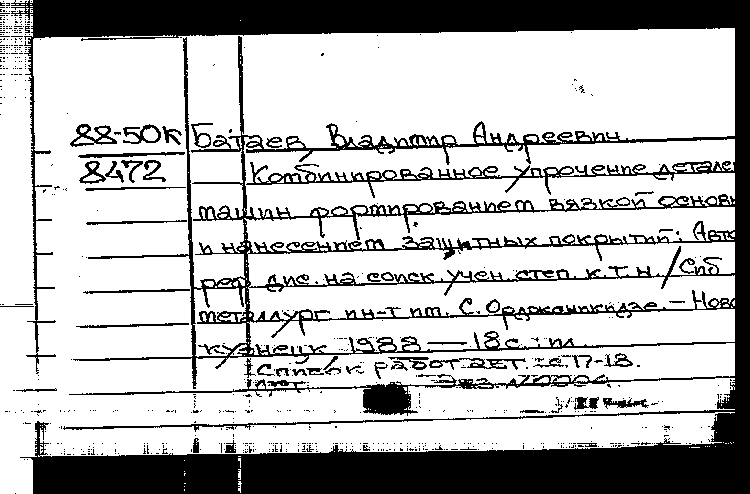 88-50К Батаев, Владимир Андреевич.
8472 Комбинированное упрочение детале
машин формированием вязкой основ
и нанесением защитных покрытий: Авто
реф. дис. на соиск. учен. степ. к.т.н. / Сиб
металлург. ин-т им. С. Орджоникидзе. — Ново
кузнецк 1988 — 18 с.: ил.
Список работ авт.: с. 17-18.